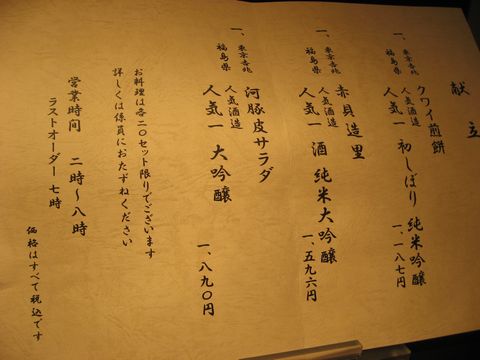 献立
一、東京吉兆 クワイ煎餅
福島県 人気酒造 人気一 初しぼり 純米吟醸
一、一八七円
一、東京吉兆 赤貝造里
福島県 人気酒造 人気一 酒 純米大吟醸
一、五九六円
一、東京吉兆 河豚皮サラダ
福島県 人気酒造 人気一 大吟醸
一、八九〇円
お料理は各二〇セット限りでございます
詳しくは係員におたずねください
営業時間 二時〜八時
ラストオーダー 七時
価格はすべて税込です